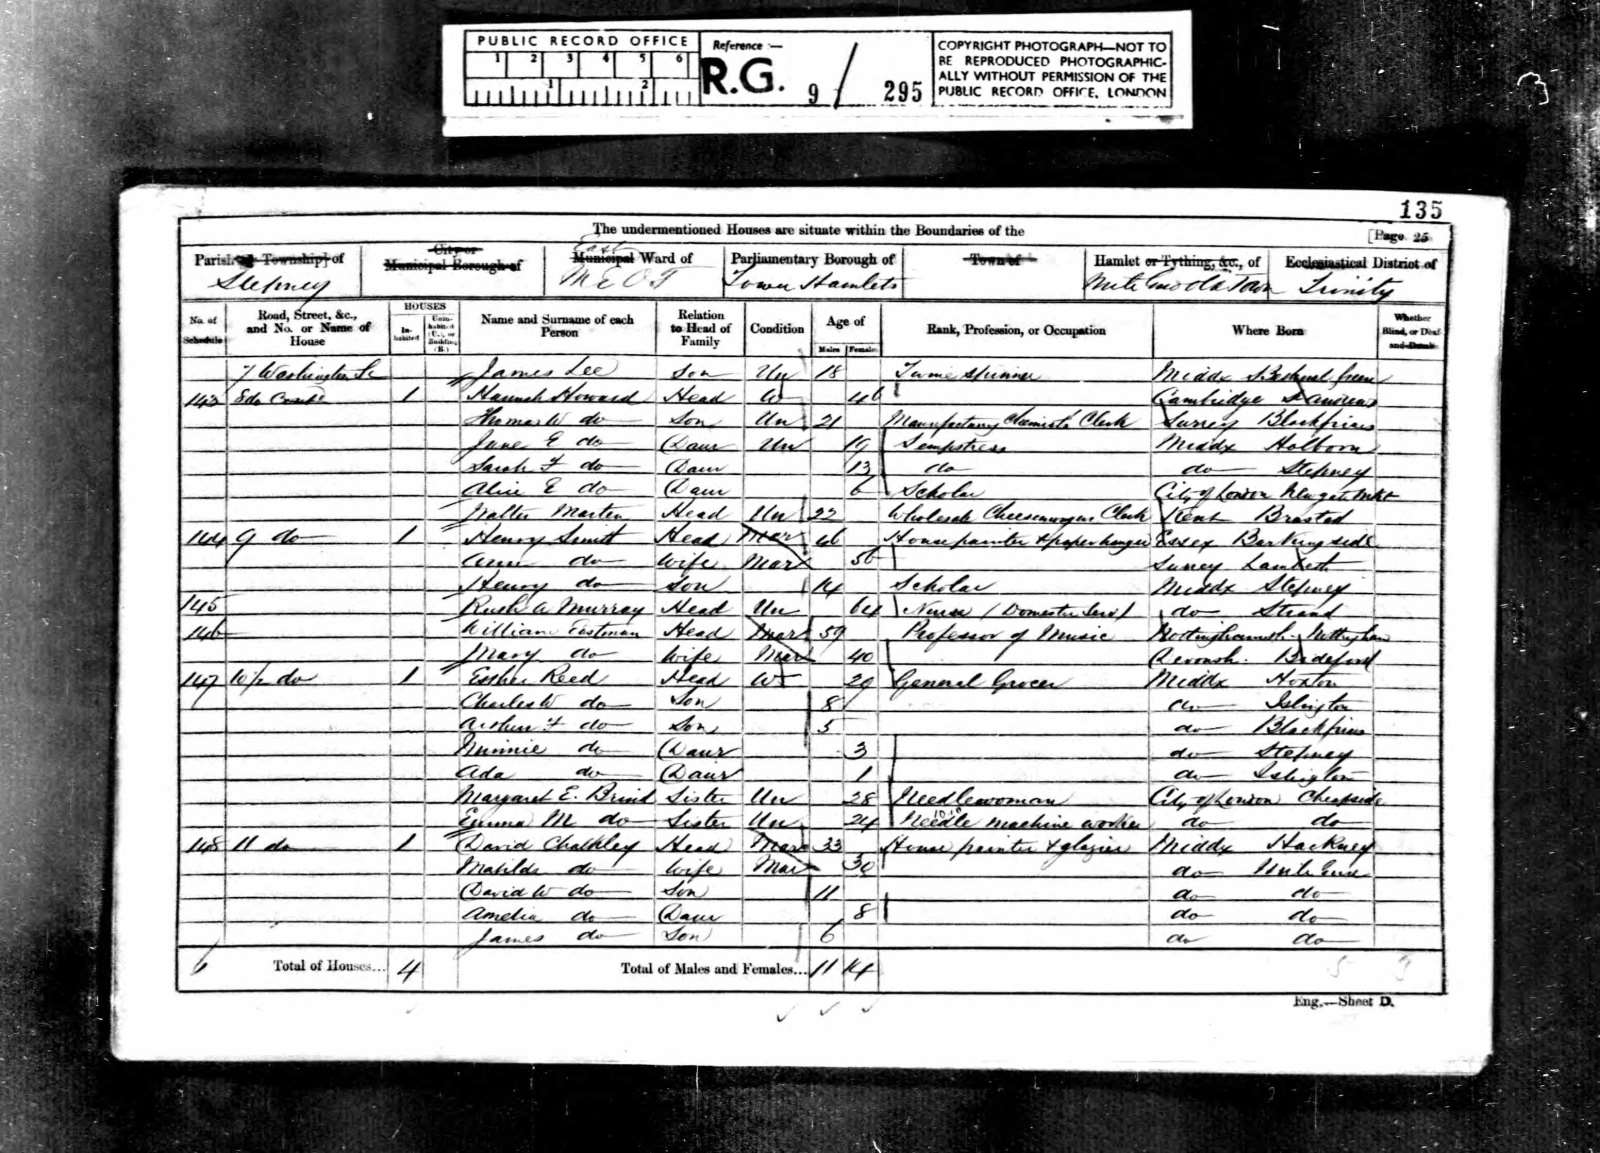 PUBLIC RECORD OFFICE
1 2 3 4 5 6
1 2
Reference :—
R.G. 9 / 295
COPYRIGHT PHOTOGRAPH—NOT TO
BE REPRODUCED PHOTOGRAPHIC-
ALLY WITHOUT PERMISSION OF THE
PUBLIC RECORD OFFICE, LONDON
3
135
The undermentioned Houses are situate within the Boundaries of the
[Page 25
Parish [or Township] of
Stepney
City or Municipal Borough of
East
Municipal Ward of
M E O T
Parliamentary Borough of
Tower Hamlets
Town of
Hamlet or Tything, &c., of
Mile End Old Town
Ecclesiastical District of
Trinity
No. of Schedule
Road, Street, &c., and No. or Name of House
HOUSES
Inhabited
Uninhabited (U.), or Building (B.)
Name and Surname of each Person
Relation to Head of Family
Condition
Age of
Males Females
Rank, Profession, or Occupation
Where Born
Whether Blind, or Deaf-and-Dumb
7 Washington St James Lee Son Un 18 Twine Spinner Middx Bethnal Green
143 8 do 1 Hannah Howard Head W 46 Cambridge St Andrews
Thomas W do Son Un 21 Manufactory Chemists Clerk Surrey Blackfriars
Jane E do Daur Un 19 Sempstress Middx Holborn
Sarah F do Daur 13 do do Stepney
Alice E do Daur 6 Scholar City of London Newgate Mkt
Walter Martin Head Un 22 Wholesale Cheesemongers Clerk Kent Brasted
144 9 do 1 Henry Smith Head Mar 46 House painter & paperhanger Essex Barkingside
Ann do Wife Mar 50 Surrey Lambeth
Henry do Son 14 Scholar Middx Stepney
145 Ruth A Murray Head Un 64 Nurse (Domestic Serv) do Strand
146 William Eastman Head Mar 59 Professor of Music Nottinghamsh. Nottingham
Mary do Wife Mar 40 Devonsh. Bideford
147 10 do 1 Esther Reed Head W 29 General Grocer Middx Hoxton
Charles W do Son 8 do Islington
Arthur F do Son 5 do Blackfriars
Minnie do Daur 3 do Stepney
Ada do Daur 1 do Islington
Margaret E. Brind Sister Un 28 Needlewoman City of London Cheapside
Emma M do Sister Un 24 Needle machine worker do do
148 11 do 1 David Chalkley Head Mar 33 House painter & glazier Middx Hackney
Matilda do Wife Mar 30 do Mile End
David W do Son 11 do do
Amelia do Daur 8 do do
James do Son 6 do do
6 Total of Houses... 4 Total of Males and Females... 11 14
Eng.—Sheet D.